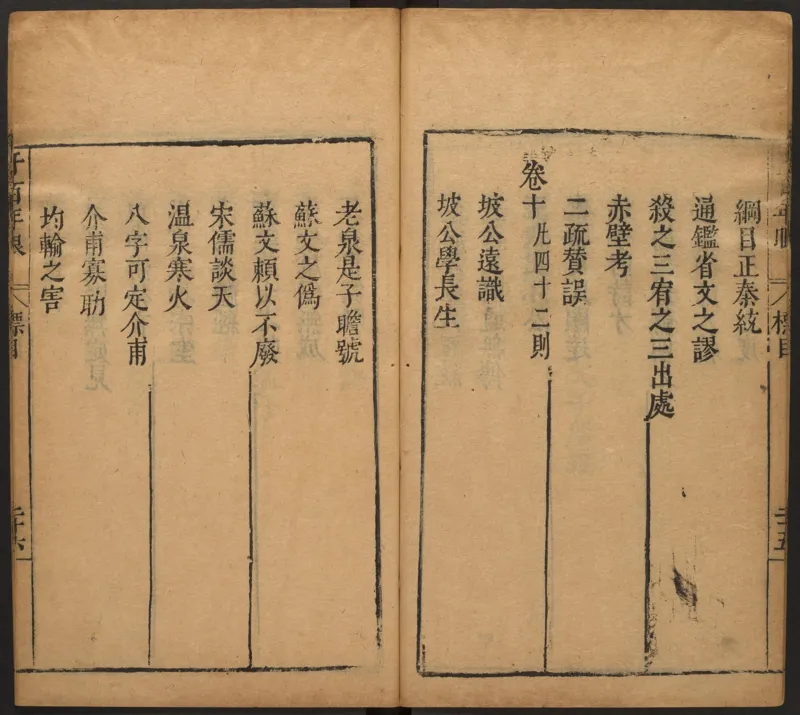 綱目正秦統
通鑑省文之謬
殺之三宥之三出處
赤壁考
二疏贊誤
卷十凡四十二則
坡公遠識
坡公學長生
老泉是子瞻號
蘇文之僞
蘇文賴以不廢
宋儒談天
溫泉寒火
八字可定介甫
介甫寡助
均輸之害
標目
二十五
百年眼
標目
二十六